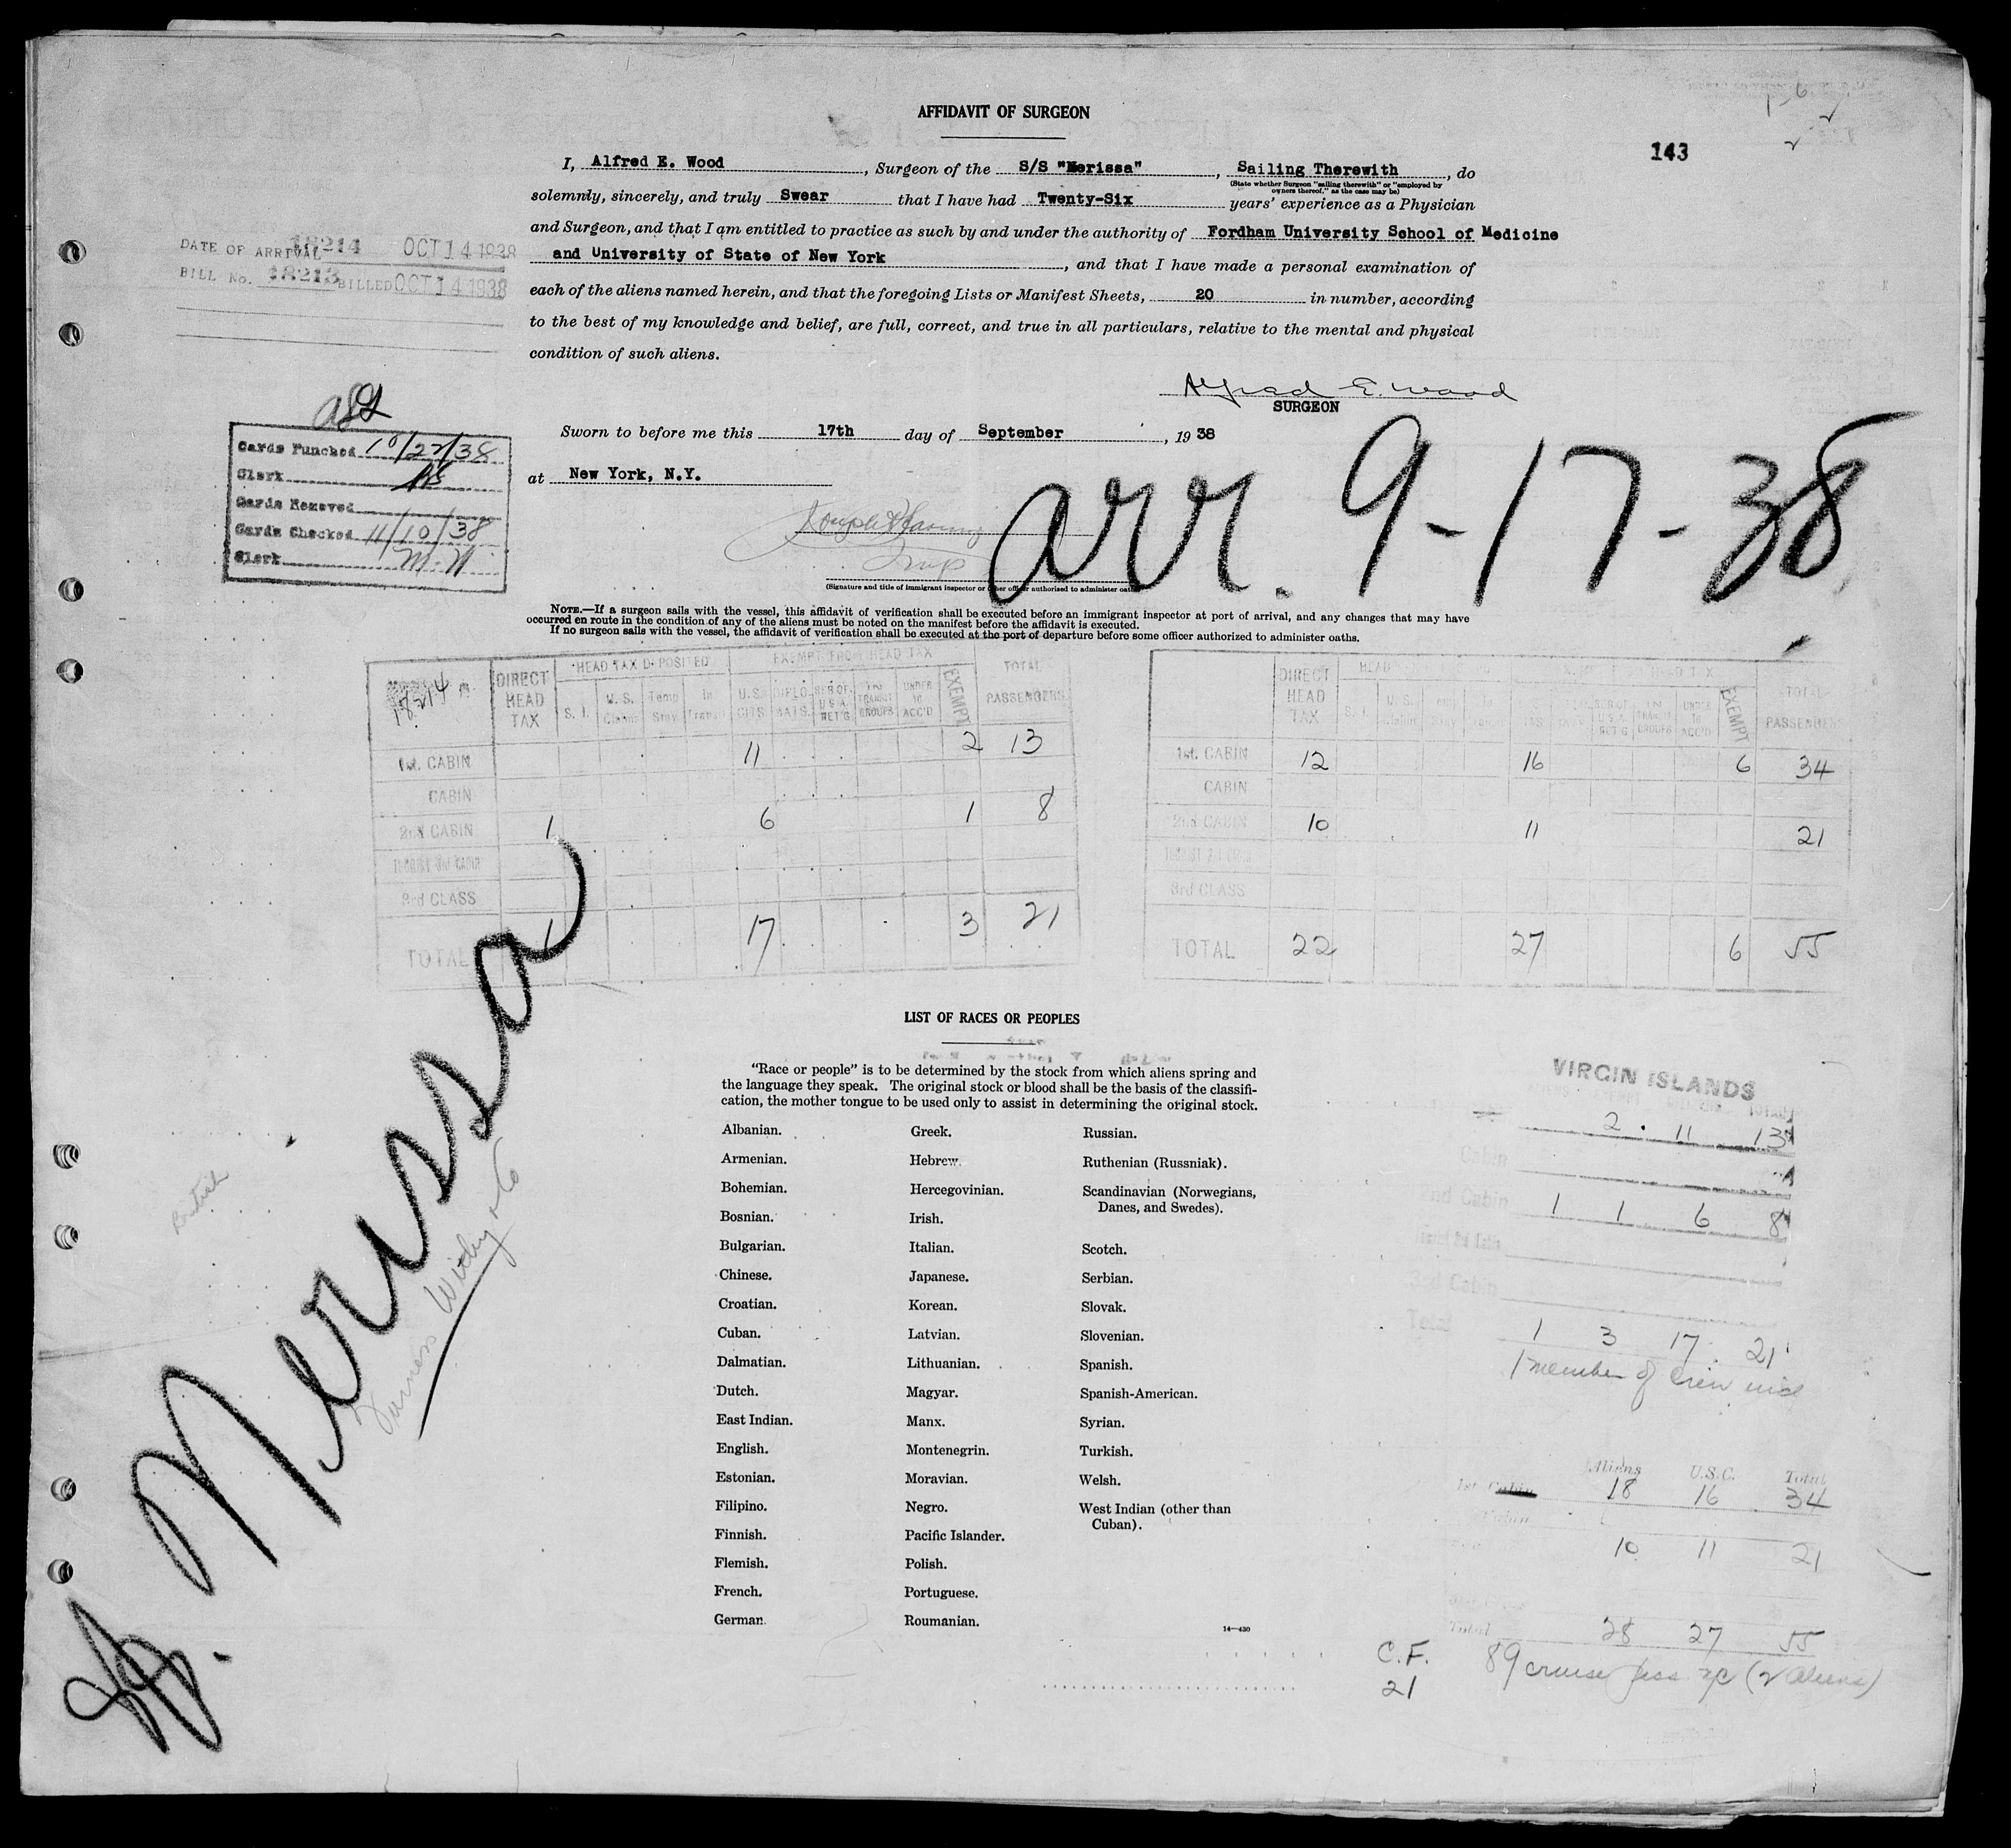 AFFIDAVIT OF SURGEON
143
I, Alfred E. Wood, Surgeon of the S/S "Nerissa", Sailing Therewith, do
(State whether Surgeon "sailing therewith" or "employed by
owners thereof," as the case may be)
solemnly, sincerely, and truly Swear that I have had Twenty-Six years' experience as a Physician
and Surgeon, and that I am entitled to practice as such by and under the authority of Fordham University School of Medicine
and University of State of New York, and that I have made a personal examination of
each of the aliens named herein, and that the foregoing Lists or Manifest Sheets, 20 in number, according
to the best of my knowledge and belief, are full, correct, and true in all particulars, relative to the mental and physical
condition of such aliens.
DATE OF ARRIVAL 18214 OCT 14 1938
BILL No. 18213 BILLED OCT 14 1938
Alfred E. Wood
SURGEON
Sworn to before me this 17th day of September, 1938
at New York, N.Y.
Cards Punched 10/27/38
Clerk
Cards Removed
Cards Checked 11/10/38
Clerk M.N.
arr. 9-17-38
(Signature and title of immigrant inspector or other officer authorized to administer oaths)
NOTE.—If a surgeon sails with the vessel, this affidavit of verification shall be executed before an immigrant inspector at port of arrival, and any changes that may have
occurred en route in the condition of any of the aliens must be noted on the manifest before the affidavit is executed.
If no surgeon sails with the vessel, the affidavit of verification shall be executed at the port of departure before some officer authorized to administer oaths.
18214
DIRECT HEAD TAX
HEAD TAX DEPOSITED
S. I.
U.S. Claims
Temp Stay
In Transit
EXEMPT FROM HEAD TAX
U.S. CITS.
DIPLOMATS.
RES OF U S A RET'G
TRANSIT GROUPS
UNDER 16 ACC'D
EXEMPT
TOTAL PASSENGERS
1st. CABIN 11 2 13
CABIN
2nd CABIN 1 6 1 8
TOURIST 3rd CABIN
3rd CLASS
TOTAL 1 17 3 21
DIRECT HEAD TAX
HEAD
S. I.
U.S. Claim
EXEMPT
TOTAL PASSENGERS
1st. CABIN 12 16 6 34
CABIN
2nd CABIN 10 11 21
TOURIST 3rd CABIN
3rd CLASS
TOTAL 22 27 6 55
SS. Nerissa
Furness Withy & Co
British
LIST OF RACES OR PEOPLES
"Race or people" is to be determined by the stock from which aliens spring and
the language they speak. The original stock or blood shall be the basis of the classifi-
cation, the mother tongue to be used only to assist in determining the original stock.
Albanian.
Armenian.
Bohemian.
Bosnian.
Bulgarian.
Chinese.
Croatian.
Cuban.
Dalmatian.
Dutch.
East Indian.
English.
Estonian.
Filipino.
Finnish.
Flemish.
French.
German.
Greek.
Hebrew.
Hercegovinian.
Irish.
Italian.
Japanese.
Korean.
Latvian.
Lithuanian.
Magyar.
Manx.
Montenegrin.
Moravian.
Negro.
Pacific Islander.
Polish.
Portuguese.
Roumanian.
Russian.
Ruthenian (Russniak).
Scandinavian (Norwegians,
Danes, and Swedes).
Scotch.
Serbian.
Slovak.
Slovenian.
Spanish.
Spanish-American.
Syrian.
Turkish.
Welsh.
West Indian (other than
Cuban).
14—430
VIRGIN ISLANDS
2 11 13
Cabin
2nd Cabin 1 1 6 8
3rd Cabin
Total 1 3 17 21
1 member of crew
Aliens U.S.C. Total
1st Cabin 18 16 34
Cabin
10 11 21
Total 28 27 55
C.F. 89 cruise pass (2 aliens)
21